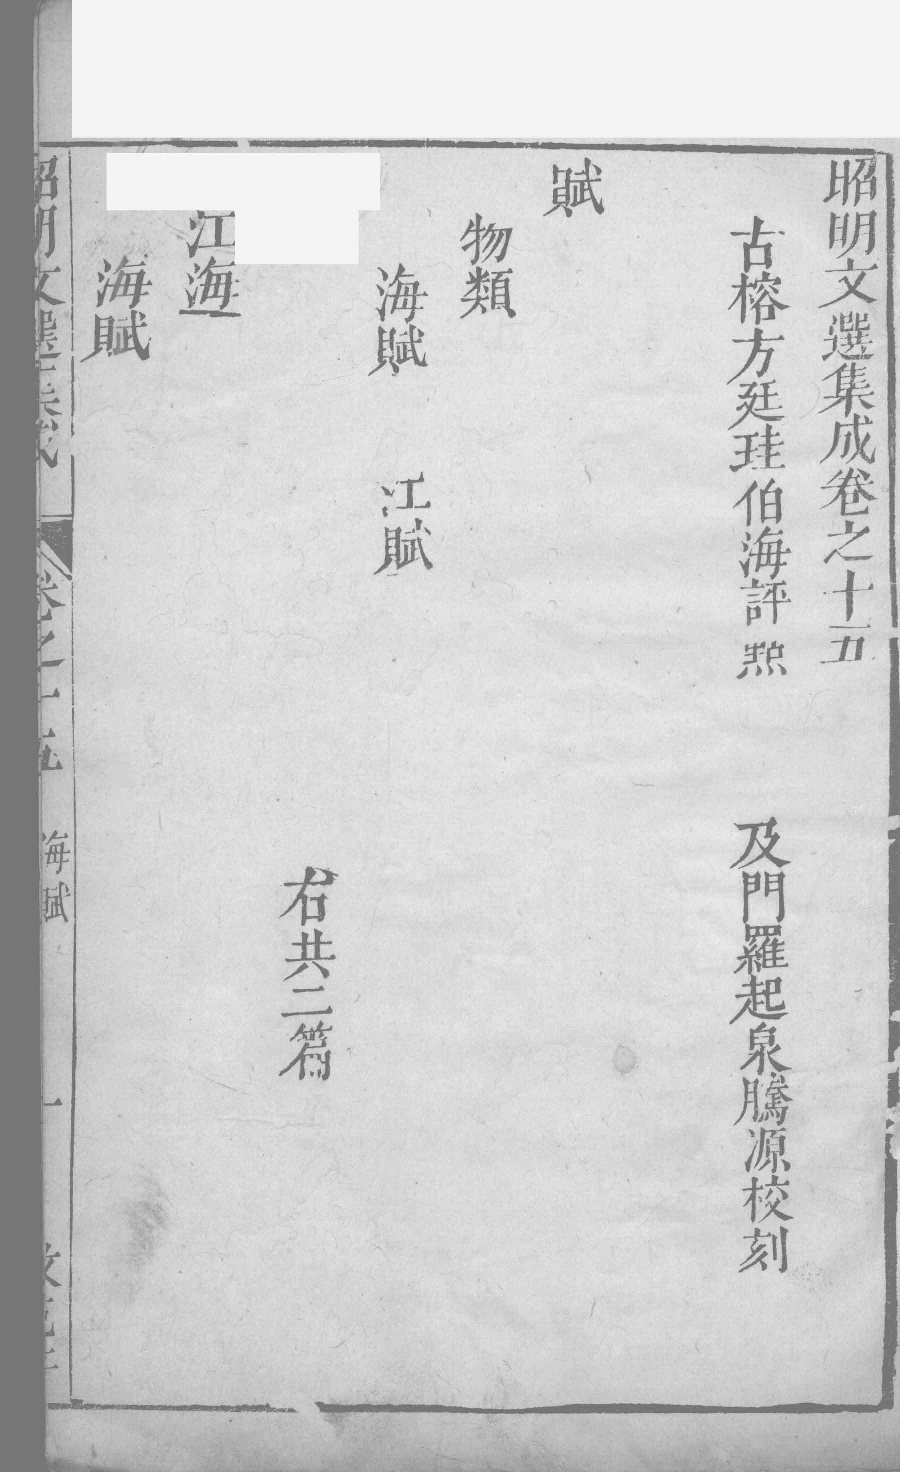 昭明文選集成卷之十五
古榕方廷珪伯海評㸃
及門羅起泉騰源校刻
賦
物類
海賦
江賦
右共二篇
江海
海賦
昭明文選集成
卷之十五
海賦
一